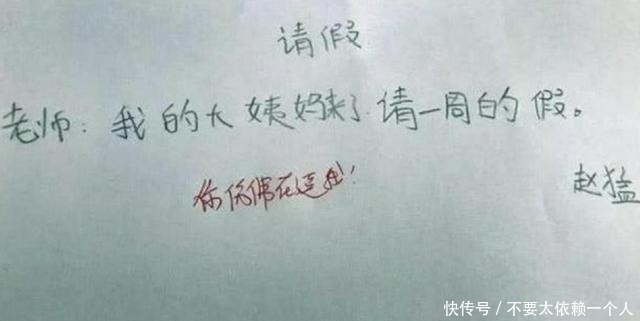 请假
老师：我的大姨妈来了请一周的假。
你仿佛在逗我！
赵猛
快传号／不要太依赖一个人